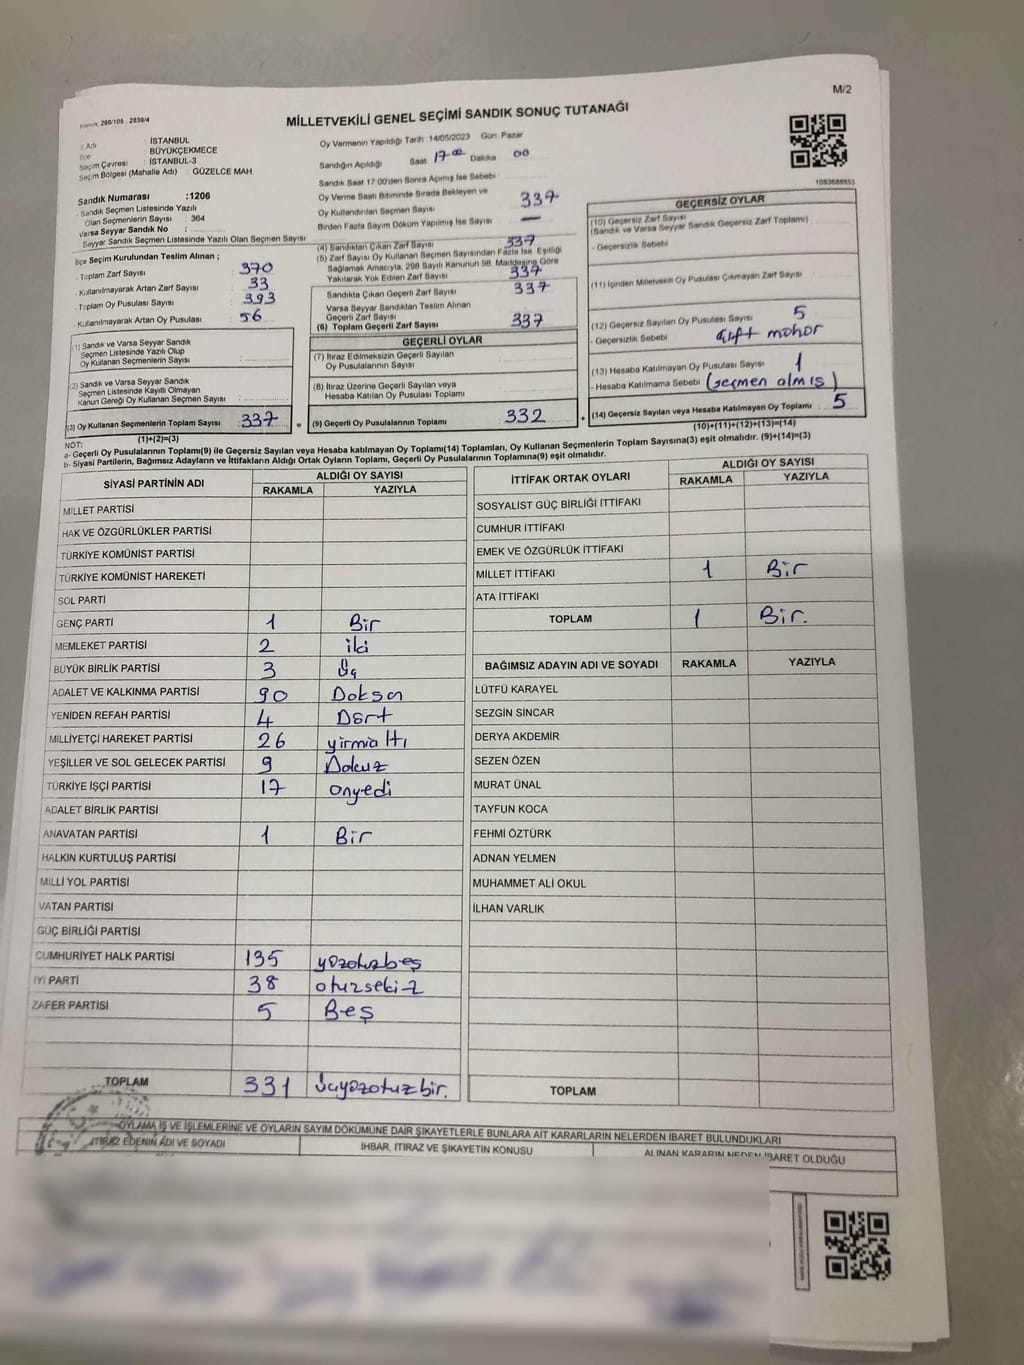 M/2
298/105 , 2839/4
MİLLETVEKİLİ GENEL SEÇİMİ SANDIK SONUÇ TUTANAĞI
1083688855
Adı : İSTANBUL
İlçe : BÜYÜKÇEKMECE
Seçim Çevresi : İSTANBUL-3
Seçim Bölgesi (Mahalle Adı) : GÜZELCE MAH.
Sandık Numarası :1206
Sandık Seçmen Listesinde Yazılı
Olan Seçmenlerin Sayısı : 364
Varsa Seyyar Sandık No :
Seyyar Sandık Seçmen Listesinde Yazılı Olan Seçmen Sayısı :
İlçe Seçim Kurulundan Teslim Alınan ;
- Toplam Zarf Sayısı 370
- Kullanılmayarak Artan Zarf Sayısı 33
- Toplam Oy Pusulası Sayısı 393
- Kullanılmayarak Artan Oy Pusulası 56
(1) Sandık ve Varsa Seyyar Sandık
Seçmen Listesinde Yazılı Olup
Oy Kullanan Seçmenlerin Sayısı :
(2) Sandık ve Varsa Seyyar Sandık
Seçmen Listesinde Kayıtlı Olmayan
Kanun Gereği Oy Kullanan Seçmen Sayısı :
(3) Oy Kullanan Seçmenlerin Toplam Sayısı : 337
(1)+(2)=(3)
Oy Vermenin Yapıldığı Tarih 14/05/2023 Gün: Pazar
Sandığın Açıldığı Saat 17.00 Dakika 00
Sandık Saat 17:00'den Sonra Açılmış İse Sebebi
Oy Verme Saati Bitiminde Sırada Bekleyen ve
Oy Kullandırılan Seçmen Sayısı 337
Birden Fazla Sayım Döküm Yapılmış İse Sayısı —
(4) Sandıktan Çıkan Zarf Sayısı 337
(5) Zarf Sayısı Oy Kullanan Seçmen Sayısından Fazla İse, Eşitliği
Sağlamak Amacıyla, 298 Sayılı Kanunun 98. Maddesine Göre
Yakılarak Yok Edilen Zarf Sayısı 337
Sandıkta Çıkan Geçerli Zarf Sayısı : 337
Varsa Seyyar Sandıktan Teslim Alınan
Geçerli Zarf Sayısı :
(6) Toplam Geçerli Zarf Sayısı : 337
GEÇERLİ OYLAR
(7) İtiraz Edilmeksizin Geçerli Sayılan
Oy Pusulalarının Sayısı :
(8) İtiraz Üzerine Geçerli Sayılan veya
Hesaba Katılan Oy Pusulası Toplamı :
= (9) Geçerli Oy Pusulalarının Toplamı : 332
GEÇERSİZ OYLAR
(10) Geçersiz Zarf Sayısı
(Sandık ve Varsa Seyyar Sandık Geçersiz Zarf Toplamı) :
- Geçersizlik Sebebi
(11) İçinden Milletvekili Oy Pusulası Çıkmayan Zarf Sayısı :
(12) Geçersiz Sayılan Oy Pusulası Sayısı : 5
- Geçersizlik Sebebi : çift mühür
(13) Hesaba Katılmayan Oy Pusulası Sayısı : 1
- Hesaba Katılmama Sebebi (seçmen almış)
+ (14) Geçersiz Sayılan veya Hesaba Katılmayan Oy Toplamı : 5
(10)+(11)+(12)+(13)=(14)
NOT:
a- Geçerli Oy Pusulalarının Toplamı(9) ile Geçersiz Sayılan veya Hesaba katılmayan Oy Toplamı(14) Toplamları, Oy Kullanan Seçmenlerin Toplam Sayısına(3) eşit olmalıdır. (9)+(14)=(3)
b- Siyasi Partilerin, Bağımsız Adayların ve İttifakların Aldığı Ortak Oyların Toplamı, Geçerli Oy Pusulalarının Toplamına(9) eşit olmalıdır.
SİYASİ PARTİNİN ADI ALDIĞI OY SAYISI
RAKAMLA YAZIYLA
MİLLET PARTİSİ
HAK VE ÖZGÜRLÜKLER PARTİSİ
TÜRKİYE KOMÜNİST PARTİSİ
TÜRKİYE KOMÜNİST HAREKETİ
SOL PARTİ
GENÇ PARTİ 1 Bir
MEMLEKET PARTİSİ 2 iki
BÜYÜK BİRLİK PARTİSİ 3 Üç
ADALET VE KALKINMA PARTİSİ 90 Doksan
YENİDEN REFAH PARTİSİ 4 Dört
MİLLİYETÇİ HAREKET PARTİSİ 26 yirmialtı
YEŞİLLER VE SOL GELECEK PARTİSİ 9 Dokuz
TÜRKİYE İŞÇİ PARTİSİ 17 onyedi
ADALET BİRLİK PARTİSİ
ANAVATAN PARTİSİ 1 Bir
HALKIN KURTULUŞ PARTİSİ
MİLLİ YOL PARTİSİ
VATAN PARTİSİ
GÜÇ BİRLİĞİ PARTİSİ
CUMHURİYET HALK PARTİSİ 135 yüzotuzbeş
İYİ PARTİ 38 otuzsekiz
ZAFER PARTİSİ 5 Beş
TOPLAM 331 üçyüzotuzbir.
İTTİFAK ORTAK OYLARI ALDIĞI OY SAYISI
RAKAMLA YAZIYLA
SOSYALİST GÜÇ BİRLİĞİ İTTİFAKI
CUMHUR İTTİFAKI
EMEK VE ÖZGÜRLÜK İTTİFAKI
MİLLET İTTİFAKI 1 Bir
ATA İTTİFAKI
TOPLAM 1 Bir.
BAĞIMSIZ ADAYIN ADI VE SOYADI RAKAMLA YAZIYLA
LÜTFÜ KARAYEL
SEZGİN SİNCAR
DERYA AKDEMİR
SEZEN ÖZEN
MURAT ÜNAL
TAYFUN KOCA
FEHMİ ÖZTÜRK
ADNAN YELMEN
MUHAMMET ALİ OKUL
İLHAN VARLIK
TOPLAM
OYLAMA İŞ VE İŞLEMLERİNE VE OYLARIN SAYIM DÖKÜMÜNE DAİR ŞİKAYETLERLE BUNLARA AİT KARARLARIN NELERDEN İBARET BULUNDUKLARI
İTİRAZ EDENİN ADI VE SOYADI İHBAR, İTİRAZ VE ŞİKAYETİN KONUSU ALINAN KARARIN NEDEN İBARET OLDUĞU